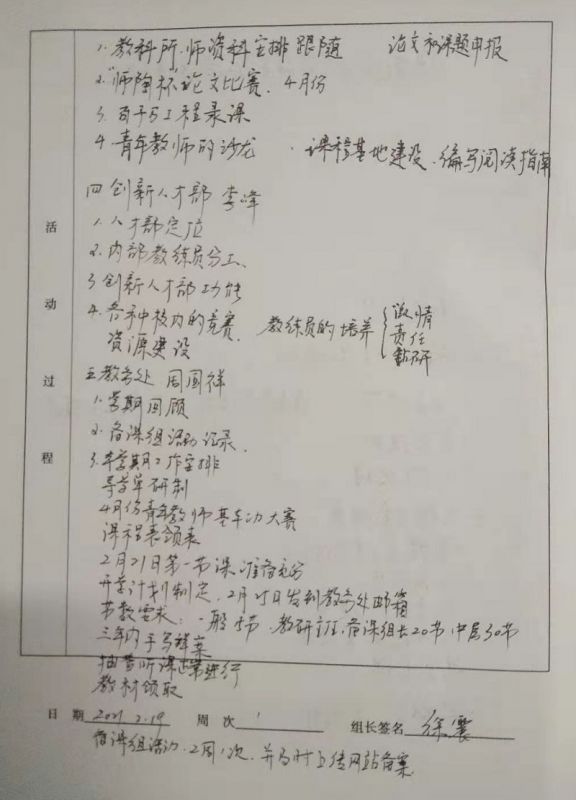 1. 教科所. 师资科安排 跟随 论文和课题申报
2. "师陶杯"论文比赛. 4月份
3. 百千万工程录课
4. 青年教师的沙龙 . 课程基地建设. 编写阅读指南
四 创新人才部 李峰
1. 人才部定位
2. 内部教练员分工.
3 创新人才部功能
4. 各种校内的竞赛. 教练员的培养 { 激情
资源建设 责任
钻研
五 教务处 周国祥
1. 学期回顾
2. 备课组活动记录.
3. 本学期工作安排
导学单研制
4月份青年教师基本功大赛
课程表领表
2月21日第一节课 准备充分
开学计划制定. 2月 日发到教务处邮箱
节数要求: 一般 节. 教研主任, 备课组长20节, 中层30节
三年内手写教案
抽查听课正常进行
教材领取
活动过程
日 期 2021. 2.19 周 次 1 组长签名 徐震
备课组活动. 2周1次, 并及时上传网站备案.